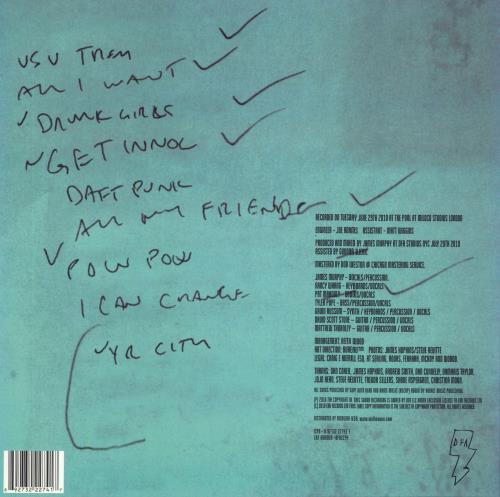 US V THEM
ALL I WANT
DRUNK GIRLS
GET INNOC
DAFT PUNK
ALL MY FRIENDS
POW POW
I CAN CHANGE
YR CITY
RECORDED ON TUESDAY JUNE 29TH 2010 AT THE POOL AT MILOCO STUDIOS LONDON
ENGINEER - JOE ADAMS ASSISTANT - MATT WIGGINS
PRODUCED AND MIXED BY JAMES MURPHY AT DFA STUDIOS NYC JULY 20TH 2010
ASSISTED BY
MASTERED BY BOB WESTON @ CHICAGO MASTERING SERVICE.
JAMES MURPHY - VOCALS/PERCUSSION
NANCY WHANG - KEYBOARDS/VOCALS
PAT MAHONEY - DRUMS/VOCALS
TYLER POPE - BASS/PERCUSSION/VOCALS
GAVIN RUSSOM - SYNTH / KEYBOARDS / PERCUSSION / VOCALS
DAVID SCOTT STONE - GUITAR / PERCUSSION / VOCALS
MATTHEW THORNLEY - GUITAR / PERCUSSION / VOCALS
MANAGEMENT: KEITH WOOD
DISTRIBUTED BY
DFA
8 92732 22741 7